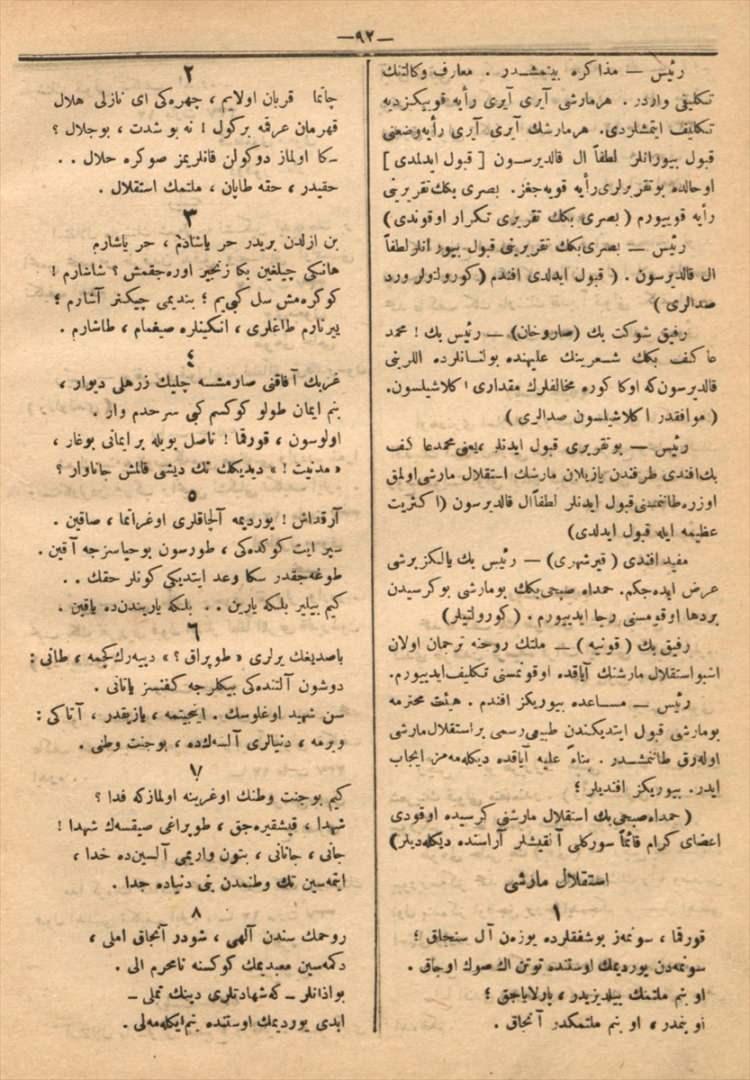 — ٩٢ —
رئیس — مذاکره بیتمشدر . معارف وکالتنك
تکلیفی واردر . هرمارشی آیری آیری رأیه قویمکزدیه
تکلیف ایتمشلردی. هرمارشك آیری آیری رأیه وضعنی
قبول بیورانلر لطفاً ال قالدیرسون [ قبول ایدلمدی ]
اوحالده بوتقریرلری رأیه قویه‌جغز. بصری بکك تقریرینی
رأیه قویییورم ( بصری بکك تقریری تکرار اوقوندی )
رئیس — بصری‌بکك تقریرینی قبول بیورانلر لطفاً
ال قالدیرسون . ( قبول ایدلدی افندم ( کورولتولر ورد
صدالری )
رفیق شوکت بك (صاروخان) — رئیس بك ! محمد
عاکف بکك شعرینك علیهنده بولنانلرده اللرینی
قالدیرسون‌که اوکا کوره مخالفلرك مقداری اکلاشیلسون.
( موافقدر اکلاشیلسون صدالری )
رئیس — بوتقریری قبول ایدنلر ،یعنی‌محمدعاکف
بك‌افندی طرفندن یازیلان مارشك استقلال مارشی‌اولمق
اوزره‌طاننمسنی‌قبول ایدنلر لطفاًال قالدیرسون (اکثریت
عظیمه ایله قبول ایدلدی)
مفید افندی ( قیرشهری ) — رئیس بك یالکزبرشی
عرض ایده‌جکم. حمدالله صبحی‌بکك بومارشی بوکرسیدن
بردها اوقومسنی رجا ایدییورم . ( کورولتیلر)
رفیق بك ( قونیه ) — ملتك روحنه ترجمان اولان
اشبواستقلال مارشنك آیاقده اوقونمسنی تکلیف‌ایدییورم.
رئیس — مساعده بیوریکز افندم . هیئت محترمه
بومارشی قبول ایتدیکندن طبیعی‌رسمی براستقلال‌مارشی
اوله‌رق طاننمشدر . بناءً علیه آیاقده دیکله‌مه‌من ایجاب
ایدر. بیوریکز افندیلر ؛
( حمدالله‌صبحی‌بك استقلال مارشنی کرسیده اوقودی
اعضای کرام قائماً سورکلی آلقیشلر آراسنده دیکله‌دیلر)
استقلال مارشی
١
قورقما ، سونمه‌ز بوشفقلرده یوزه‌ن آل سنجاق ؛
سونمه‌دن یوردیمك اوستنده توتن اك صوك اوجاق .
او بنم ملتمك ییلدیزیدر ، پارلایاجق ؛
او بنمدر ، او بنم ملتمکدر آنجاق .
٢
چاتما قربان اولایم ، چهره‌کی ای نازلی هلال
قهرمان عرقمه برکول ! نه بو شدت ، بوجلال ؟
سکا اولماز دوکولن قانلریمز صوکره حلال . .
حقیدر ، حقه طاپان ، ملتمك استقلال .
٣
بن ازلدن بریدر حر یاشادم ، حر یاشارم
هانکی چیلغین بکا زنجیر اوره‌جقمش ؟ شاشارم !
کوکره‌مش سل کبی‌یم ؛ بندیمی چیکنر آشارم ؛
ییرتارم طاغلری ، انکینلره صیغمام ، طاشارم .
٤
غربك آفاقنی صارمشسه چلیك زرهلی دیوار ،
بنم ایمان طولو کوکسم کبی سرحدم وار .
اولوسون ، قورقما ! ناصل بویله بر ایمانی بوغار ،
« مدنیت ! » دیدیکك تك دیشی قالمش جاناوار ؟
٥
آرقداش ! یوردیمه آلچاقلری اوغراتما ، صاقین .
سپر ایت کوکده‌کی ، طورسون بوحیاسزجه آقین .
طوغه‌جقدر سکا وعد ایتدیکی کونلر حقك . .
کیم بیلیر بلکه یارین . . بلکه یاریندن‌ده یاقین .
٦
باصدیغك یرلری « طوپراق ؟ » دییه‌رك‌کچمه ، طانی :
دوشون آلتنده‌کی بیکلرجه کفنسز یاتانی .
سن شهید اوغلوسك . اینجیتمه ، یازیقدر ، آتاکی :
ویرمه ، دنیالری آلسه‌ك‌ده ، بوجنت وطنی .
٧
کیم بوجنت وطنك اوغرینه اولمازکه فدا ؟
شهدا ، فیشقیره‌جق ، طوپراغی صیقسه‌ك شهدا !
جانی ، جانانی ، بتون واریمی آلسین‌ده خدا ،
ایتمه‌سین تك وطنمدن بنی دنیاده جدا .
٨
روحمك سندن آلهی ، شودر آنجاق املی ،
دکمه‌سین معبدیمك کوکسنه نامحرم الی .
بواذانلر — که‌شهادتلری دینك تملی —
ابدی یوردیمك اوستنده بنم‌ایکله‌مه‌لی .